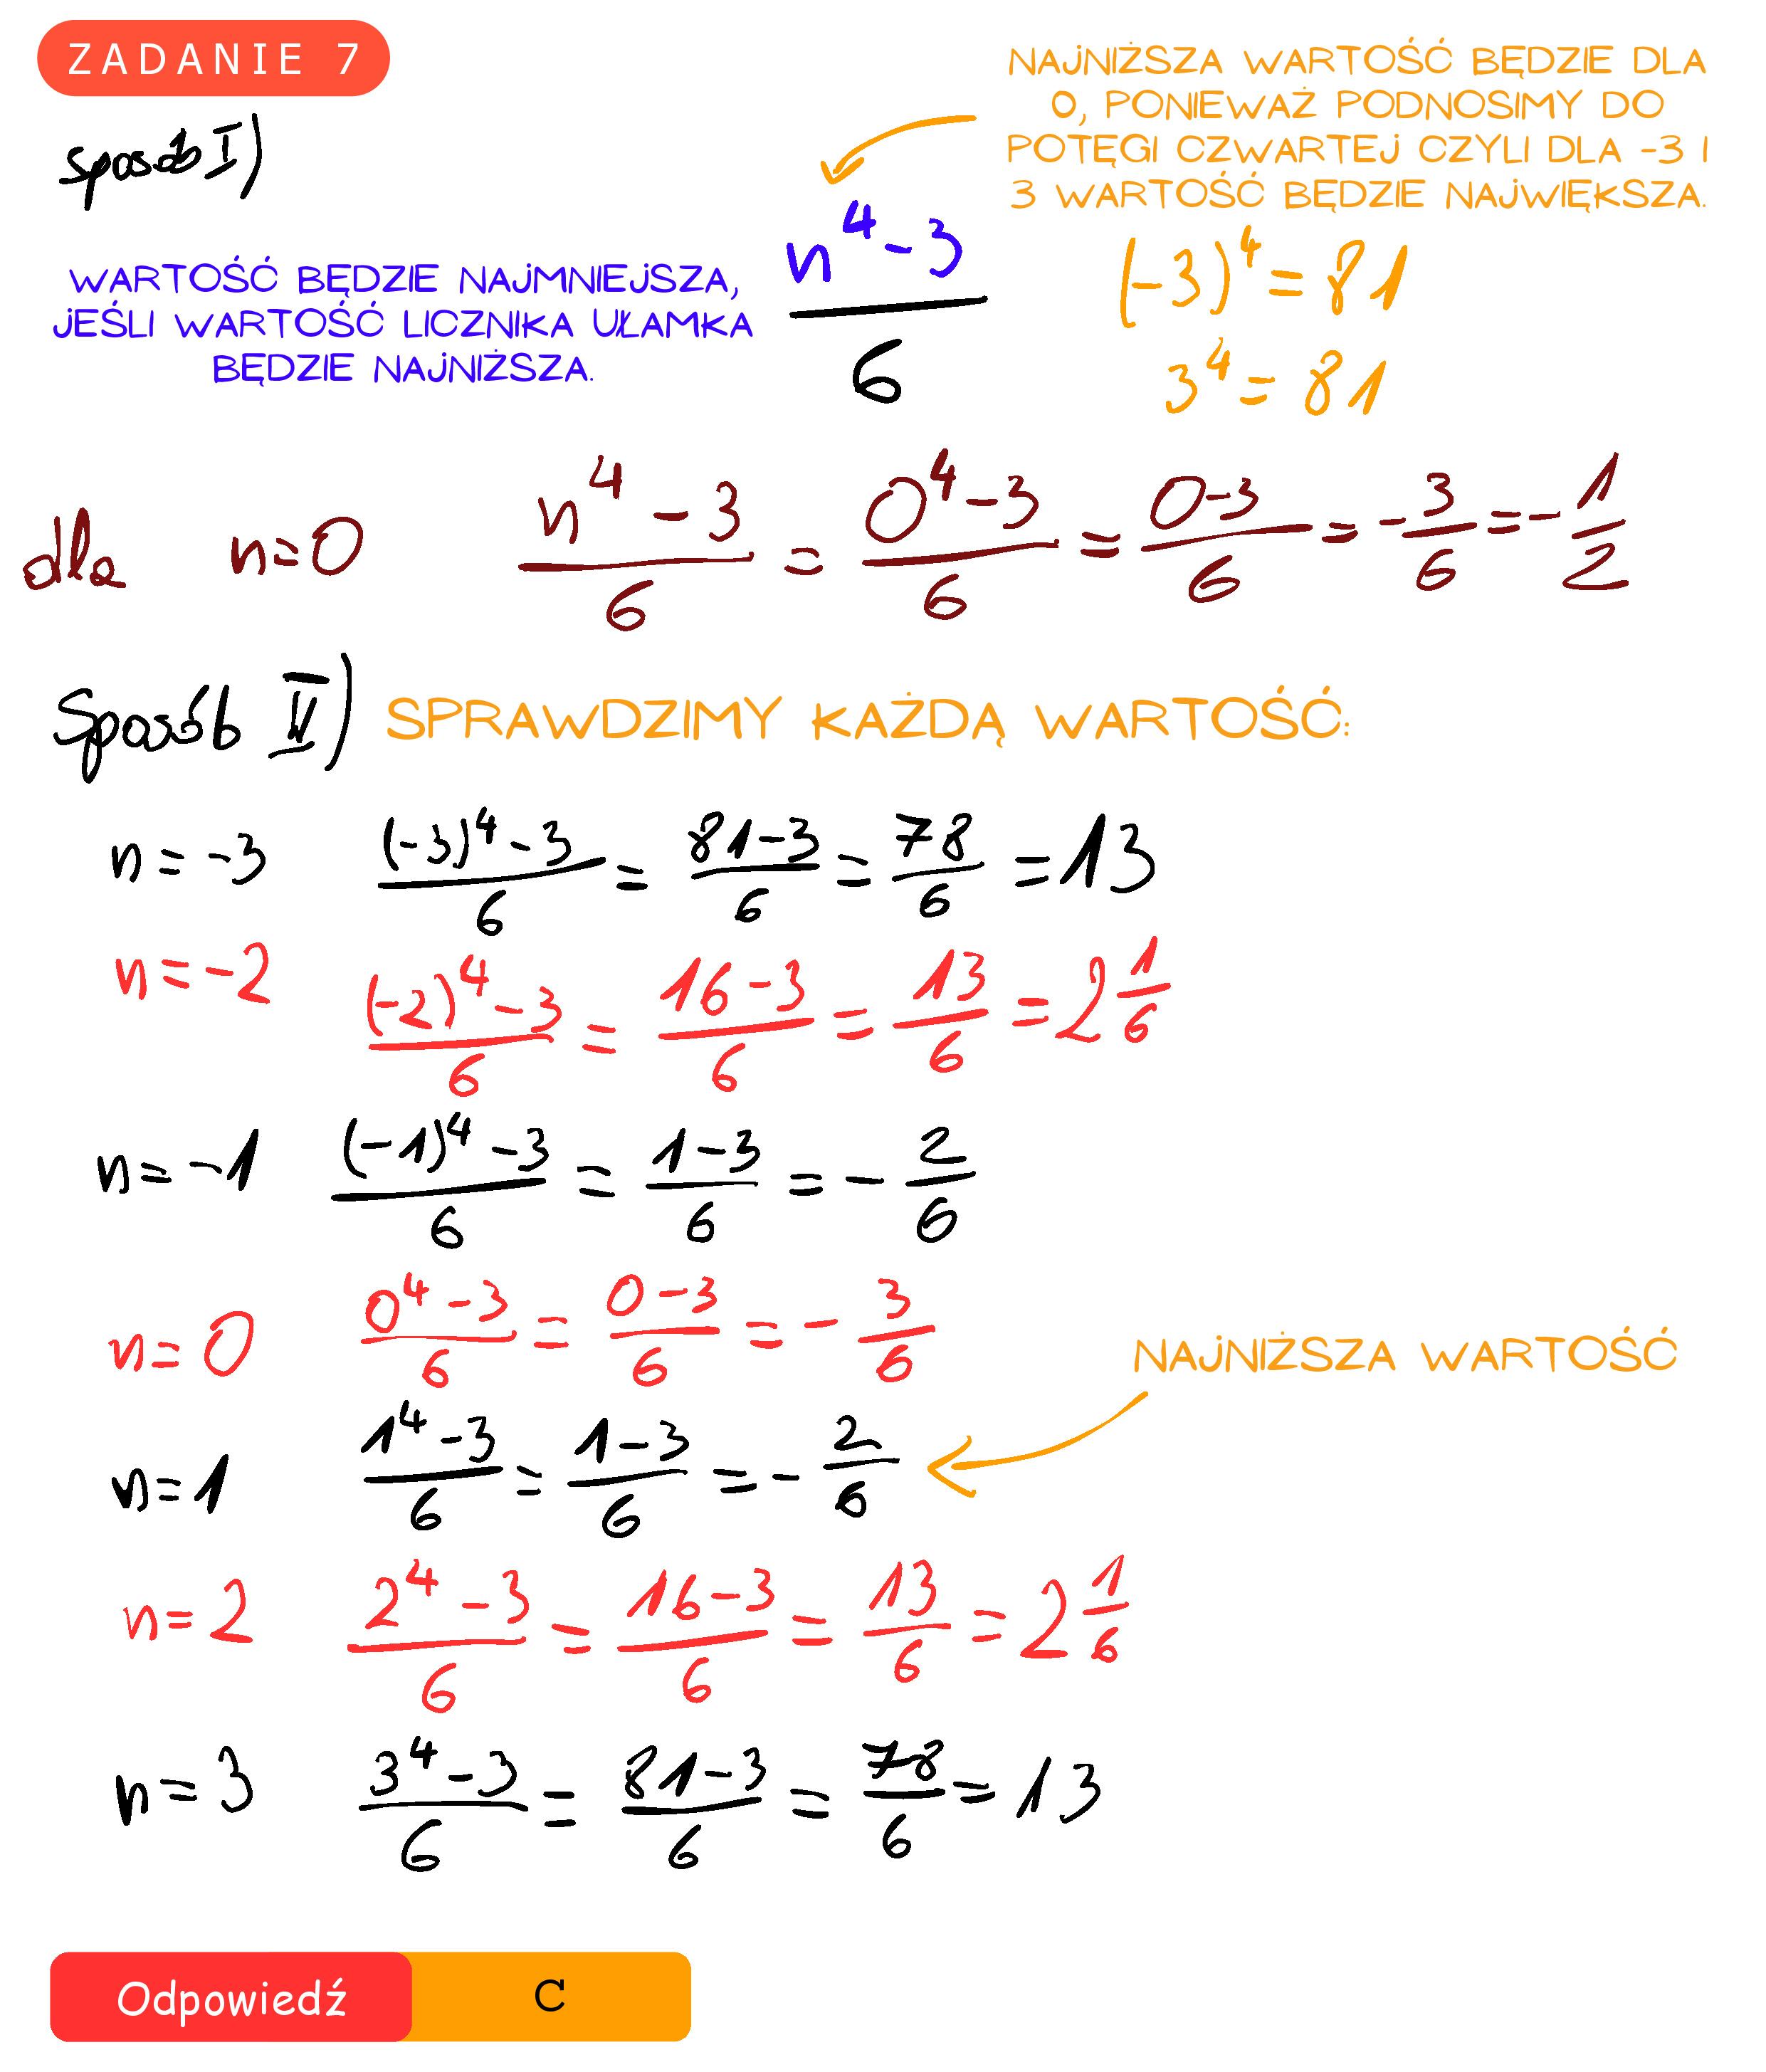 ZADANIE 7
NAJNIŻSZA WARTOŚĆ BĘDZIE DLA
0, PONIEWAŻ PODNOSIMY DO
POTĘGI CZWARTEJ CZYLI DLA -3 I
3 WARTOŚĆ BĘDZIE NAJWIĘKSZA.
sposób I)
WARTOŚĆ BĘDZIE NAJMNIEJSZA,
JEŚLI WARTOŚĆ LICZNIKA UŁAMKA
BĘDZIE NAJNIŻSZA.
n⁴-3/6
(-3)⁴=81
3⁴=81
dla n=0 n⁴-3/6 = 0⁴-3/6 = 0-3/6 = -3/6 = -1/2
Sposób II) SPRAWDZIMY KAŻDĄ WARTOŚĆ:
n=-3 (-3)⁴-3/6 = 81-3/6 = 78/6 = 13
n=-2 (-2)⁴-3/6 = 16-3/6 = 13/6 = 2 1/6
n=-1 (-1)⁴-3/6 = 1-3/6 = -2/6
n=0 0⁴-3/6 = 0-3/6 = -3/6
NAJNIŻSZA WARTOŚĆ
n=1 1⁴-3/6 = 1-3/6 = -2/6
n=2 2⁴-3/6 = 16-3/6 = 13/6 = 2 1/6
n=3 3⁴-3/6 = 81-3/6 = 78/6 = 13
Odpowiedź C